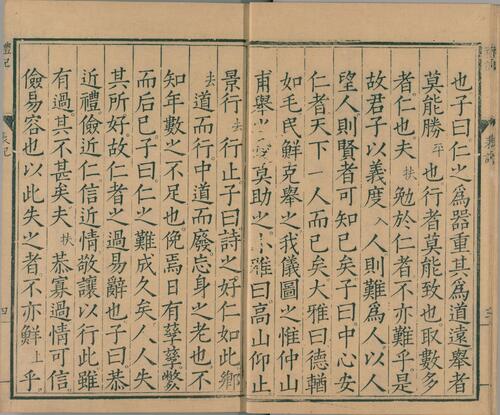 也子曰仁之爲器重其爲道遠舉者
莫能勝平也行者莫能致也取數多
者仁也夫扶勉於仁者不亦難乎是
故君子以義度入人則難爲人以人
望人則賢者可知已矣子曰中心安
仁者天下一人而已矣大雅曰德輶
如毛民鮮克舉之我儀圖之惟仲山
甫舉之愛莫助之小雅曰高山仰止
景行去行止子曰詩之好仁如此鄉
去道而行中道而廢忘身之老也不
知年數之不足也俛焉日有孳孳斃
而后已子曰仁之難成久矣人人失
其所好故仁者之過易辭也子曰恭
近禮儉近仁信近情敬讓以行此雖
有過其不甚矣夫扶恭寡過情可信
儉易容也以此失之者不亦鮮上乎
禮記
表記
四